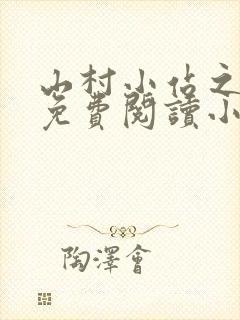 山村小佔之
免費閱讀小
陶澤會